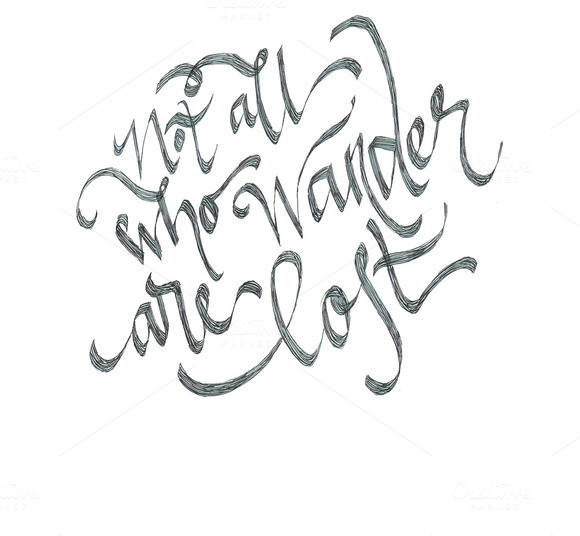 Not all
who wander
are lost